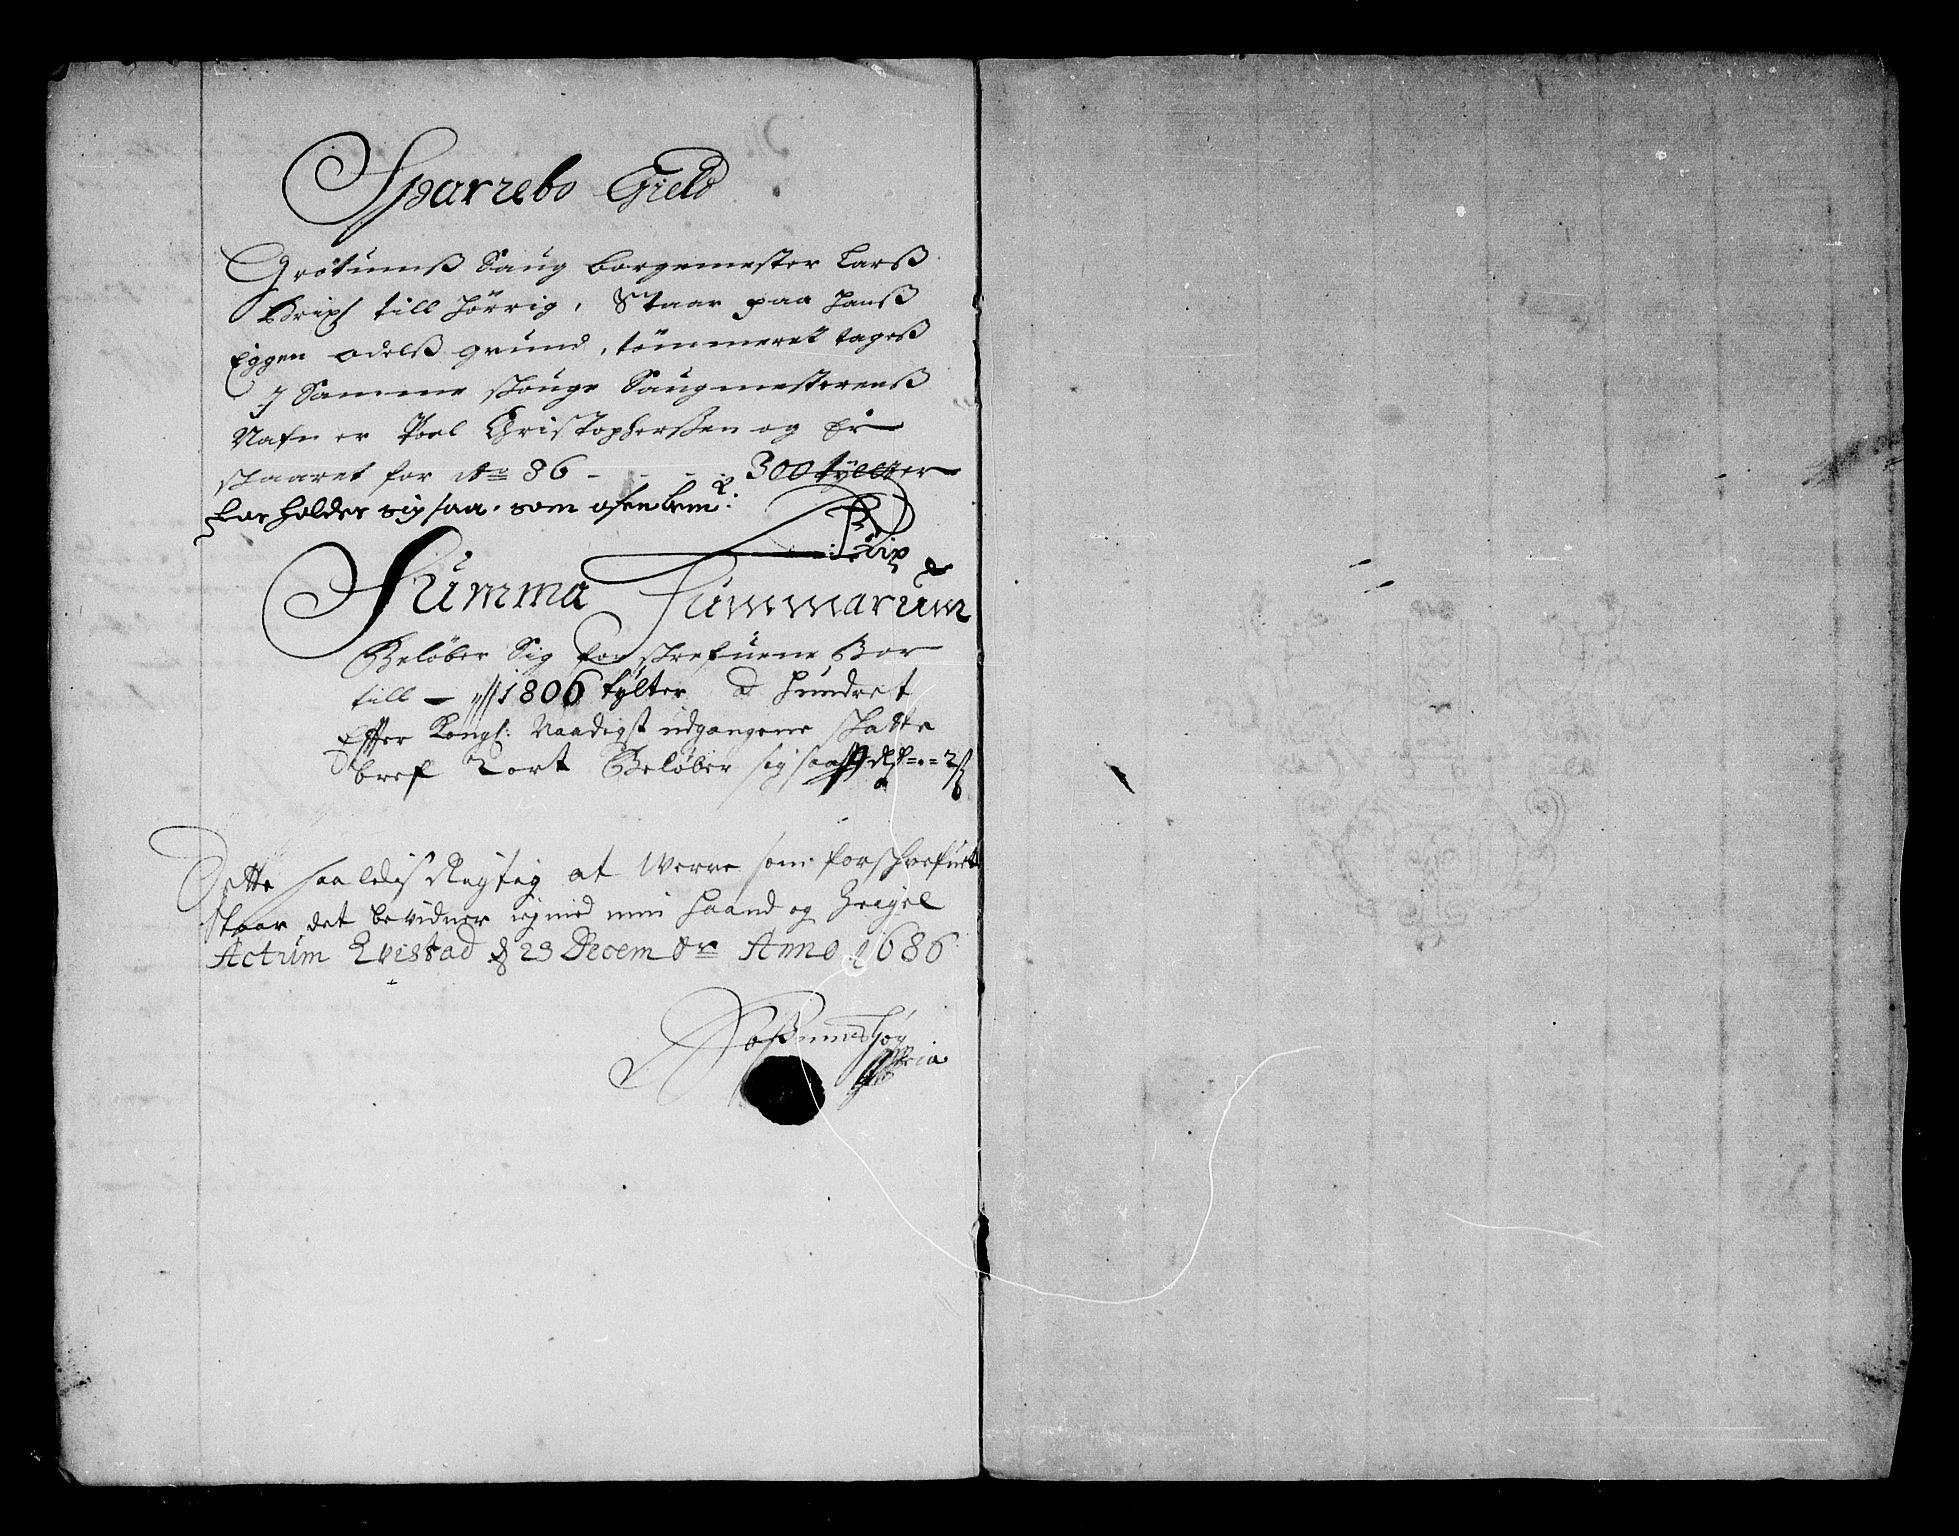 Sparrebo Gield
Grötumß Saug borgemester Larß
Brix till hörrig, Staar paa Hanß
Eggen odelß grund, tömmeret tageß
J Samme skouge Saugmesterenß
Nafn er Poel Christopherßen og Er
skaaret for Ao 86 - - - - 300 tyllter
forholder sig saa som ofenbem:
Summa Summarum
Beløber Sig for skrefuene Bor
till - 1806 tylter, a hundret
Effter Kongl: Naadigst udgangene skatte
bref Beløber sig
Dette saaledis Rigtig at Werre som forschrefuet
staar det bevidner ieg med min haand og Zeigel
Actum Qvistad d 23 Decembr Anno 1686